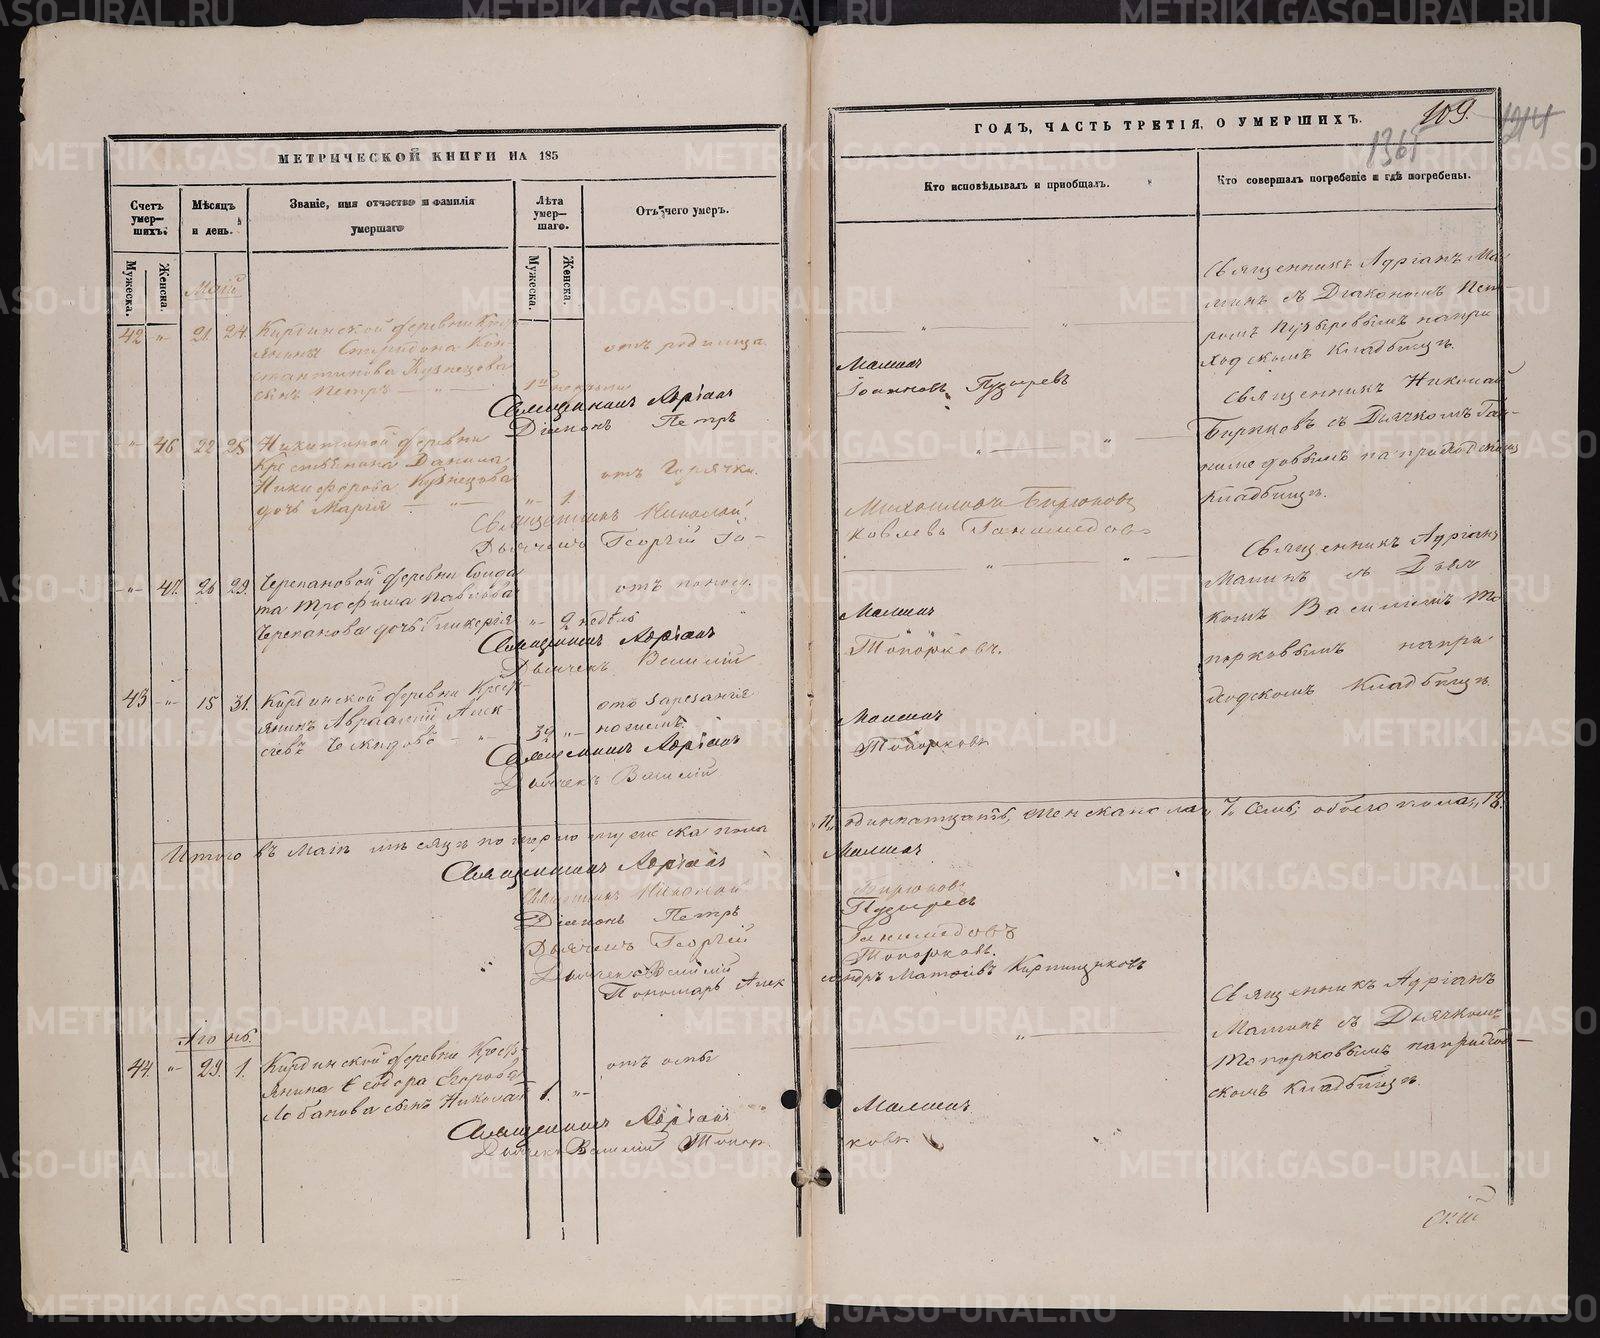 МЕТРИЧЕСКОЙ КНИГИ НА 185
Счетъ умер—шихъ.
Мѣсяцъ и день.
Званіе, имя отчество и фамилія умершаго
Лѣта умер—шаго.
Отъ чего умеръ.
Мужеска.
Женска.
Мужеска.
Женска.
Маій
42 „ 21. 24. Киргинской деревни Кресть-
янина Спиридона Кон-
стантинова Кузнецова
сынъ Петръ — „ —
отъ родимца.
Священникъ Адріанъ
Діаконъ Петръ
„ 46 22 25 Никитиной деревни
Крестьянина Данила
Никифорова Кузнецова
дочь Марія — „
„ 1.
отъ Горячки.
Священникъ Николай
Дьячекъ Георгій
„ 47. 26 29. Черепановой деревни Солда-
та Трофима Павлова
Черепанова дочь Гликерія
„ 2 недѣль
отъ поносу.
Священникъ Адріанъ
Дьячекъ Василій
43 „ 15 31. Киргинской деревни Кресть-
янинъ Авраамій Алек-
сѣевъ
39 „
отъ зарезанія
ножемъ.
Священникъ Адріанъ
Дьячекъ Василій
Итого въ Маіѣ мѣсяцѣ померло мужеска пола
Священникъ Адріанъ
Священникъ Николай
Діаконъ Петръ
Дьячекъ Георгій
Дьячекъ Василій
Пономарь Алек
Іюнь.
44. „ 29. 1. Киргинской деревни Кресть-
янина Ѳеодора Егорова
Лобанова сынъ Николай
1. „
отъ оспы
Священникъ Адріанъ
Дьячекъ Василій Топор
109.
1365
1214
ГОДЪ, ЧАСТЬ ТРЕТІЯ, О УМЕРШИХЪ.
Кто исповѣдывалъ и пріобщалъ.
Кто совершалъ погребеніе и гдѣ погребены.
Маминъ
Пузыревъ
Священникъ Адріанъ Ма-
минъ съ Діакономъ Пет-
ромъ Пузыревымъ на при-
ходскомъ Кладбищѣ.
Бирюковъ
Ганимедовъ
Священникъ Николай
Бирюковъ съ Дьячкомъ Га-
нимедовымъ на приходскомъ
Кладбищѣ.
Маминъ
Топорковъ.
Священникъ Адріанъ
Маминъ съ Дьяч
комъ Василіемъ То
порковымъ на при
ходскомъ Кладбищѣ.
Маминъ
Топорковъ
„11„ одиннатцать, женска пола „7„ семь; обоего пола „18.
Маминъ
Бирюковъ
Пузыревъ
Ганимедовъ
Топорковъ.
сандръ Матѳіевъ Кирпищиковъ
Священникъ Адріанъ
Маминъ съ Дьячкомъ
Топорковымъ на приход—
скомъ кладбищѣ.
Маминъ
ковъ
METRIKI.GASO-URAL.RU